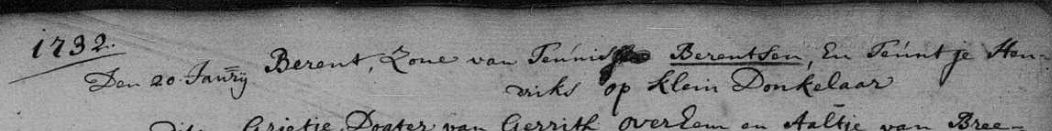 1732.
Den 20 Janrÿ Berent, Zone van Teúnis Berentsen, En Teúntje Hen-
driks op klein Donkelaar
dito Grietje Dogter van Gerrith overEem en Aaltje van Bree-